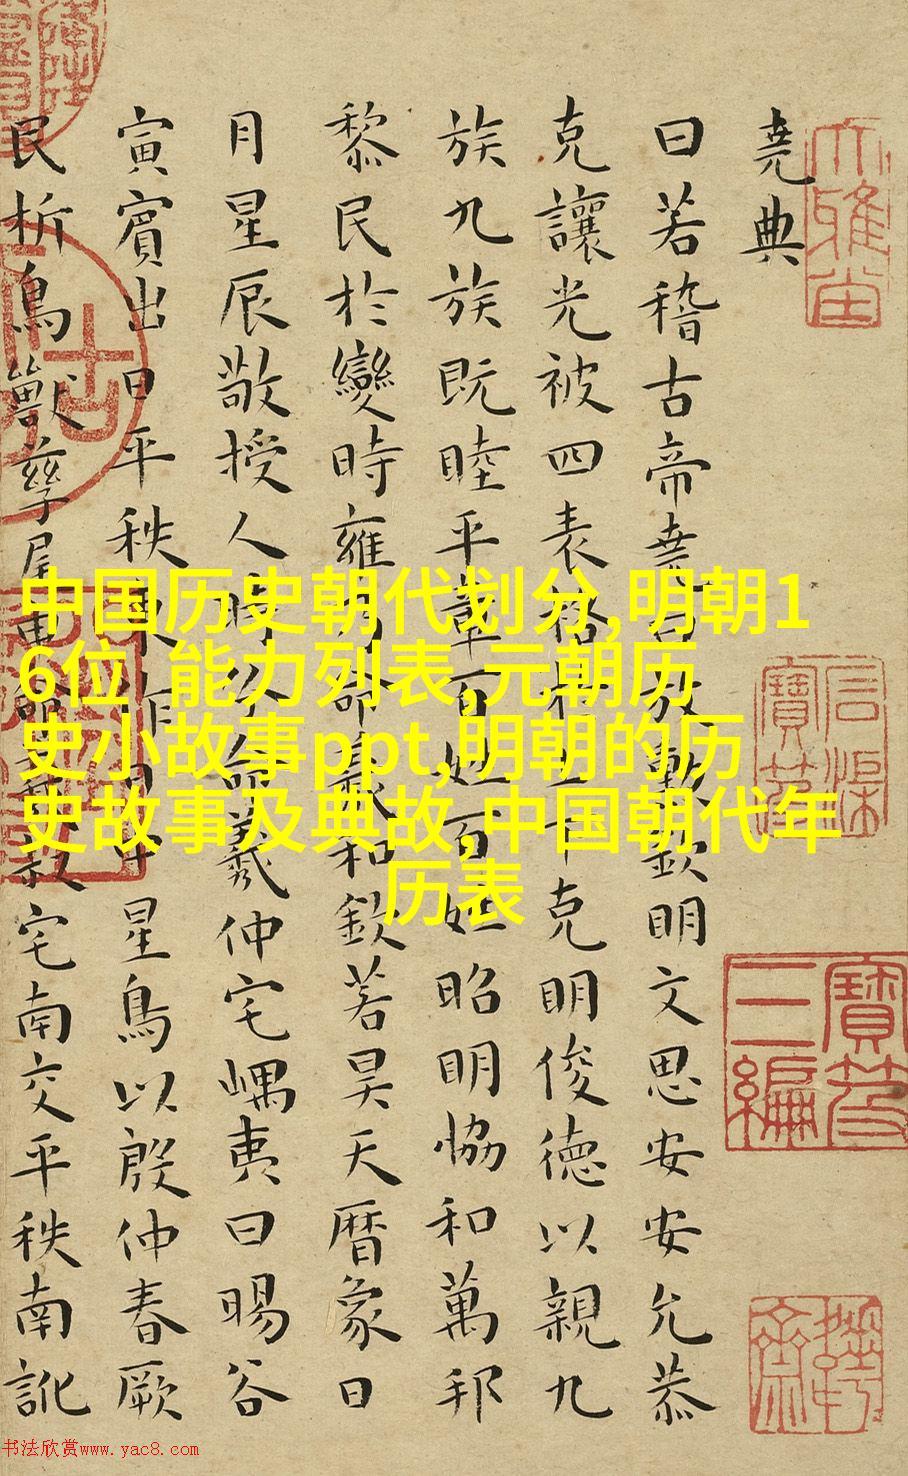 堯典
曰若稽古帝堯曰放勳欽明文思安安允恭
克讓光被四表格于上下克明俊德以親九
族九族既睦平章百姓百姓昭明恊和萬邦
黎民於變時雍乃命羲和欽若昊天暦象日
月星辰敬授人時分命羲仲宅嵎夷曰暘谷
寅賓出日平秩東作日中星鳥以殷仲春厥
民析鳥獸孳尾申命羲叔宅南交平秩南訛
中国历史朝代划分,明朝1
6位 能力列表,元朝历
史小故事ppt,明朝的历
史故事及典故,中国朝代年
历表
寶笈
三編
书法欣赏www.yac8.com